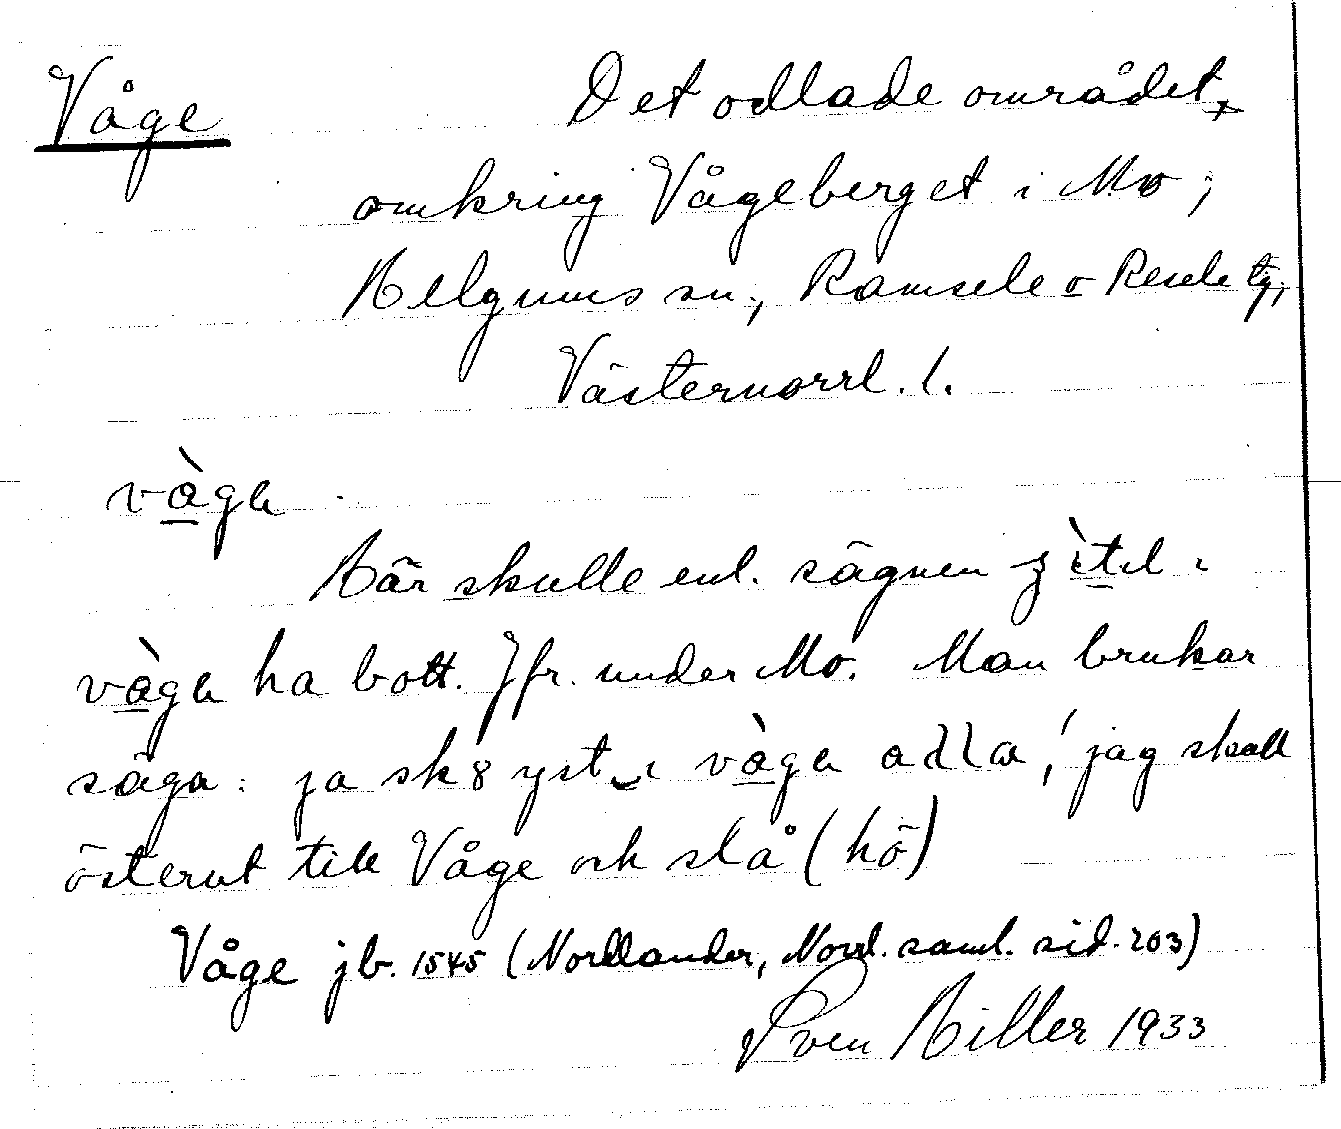 Våge Det odlade området
omkring Vågeberget i Mo,
Helgums sn, Ramsele o Resele tg,
Västernorrl. l.
vàga
Här skulle enl. sägnen i
vàga ha bott. Jfr. under Mo. Man brukar
säga: ja sk8 yst i vàga , jag skall
österut till Våge och slå (hö)
Våge jb. 1545 (Nordlander, Norrl. saml. sid. 203)
Sven Hiller 1933